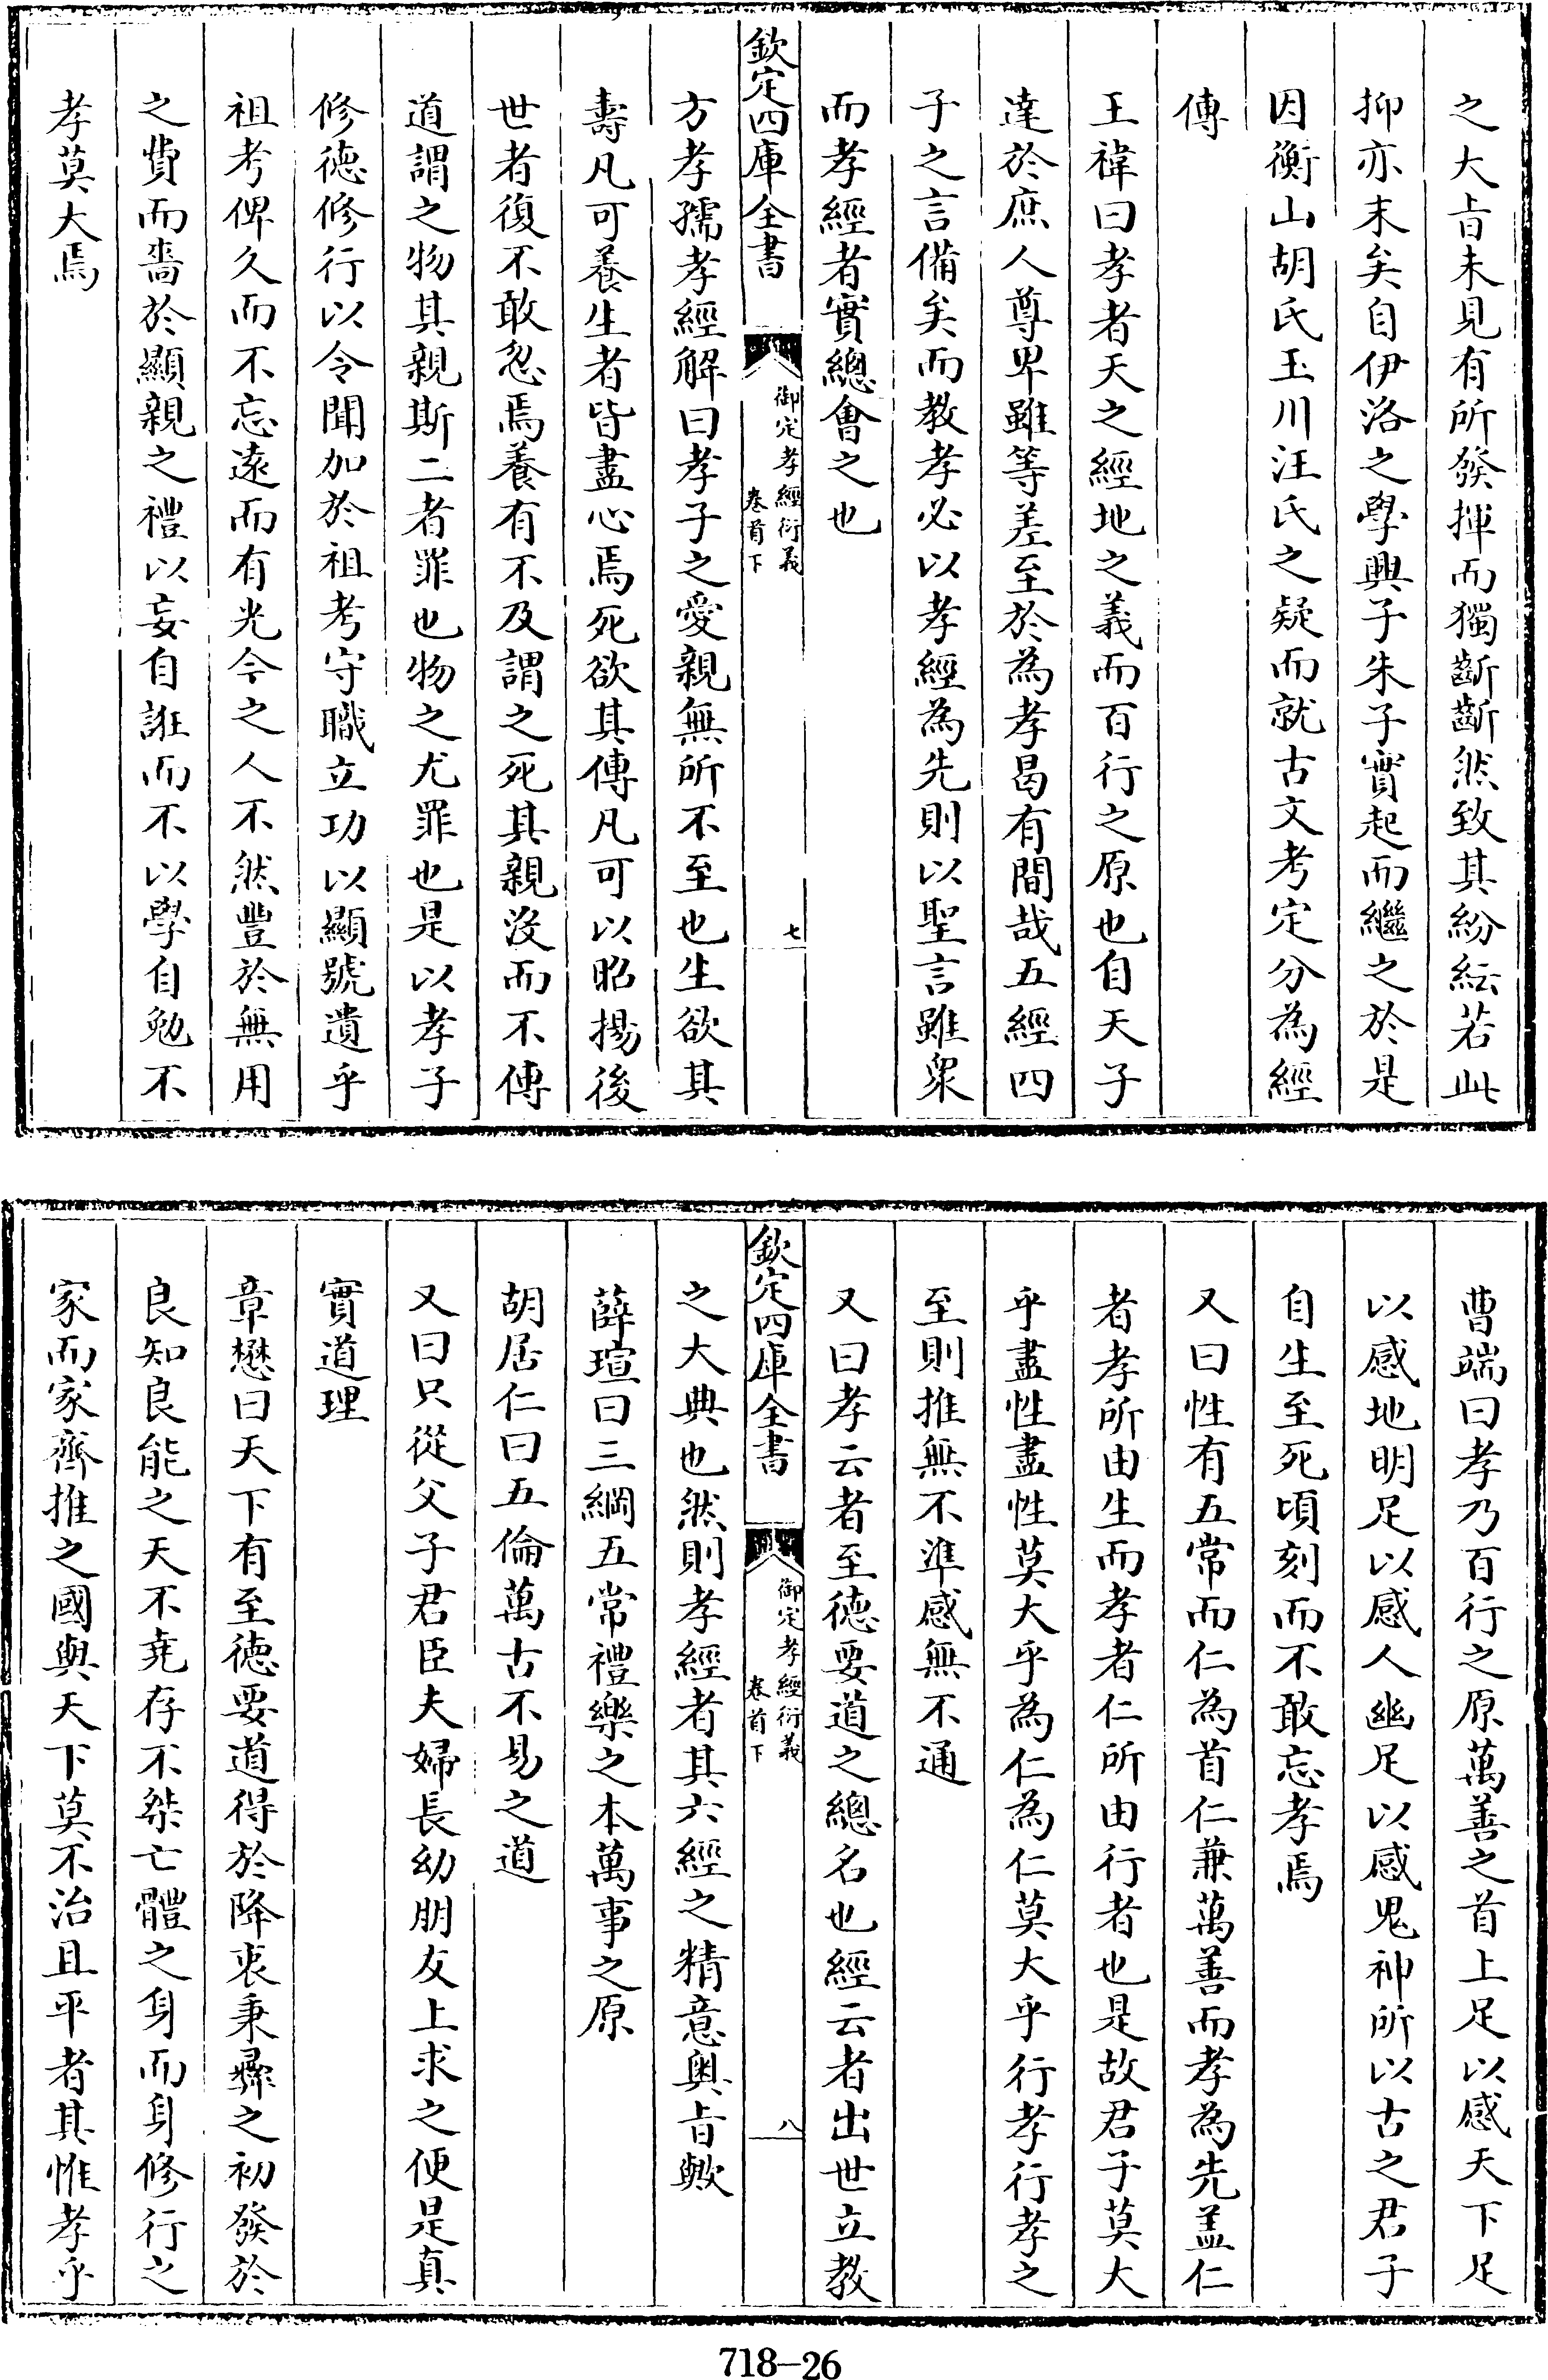 之大旨未見有所發揮而獨齗齗然致其紛紜若此
抑亦末矣自伊洛之學興子朱子實起而繼之於是
因衡山胡氏玉川汪氏之疑而就古文考定分為經
傳
王禕曰孝者天之經地之義而百行之原也自天子
達於庶人尊卑雖等差至於為孝曷有間哉五經四
子之言備矣而教孝必以孝經為先則以聖言雖衆
而孝經者實總會之也
欽定四庫全書
御定孝經衍義
卷首下
七
方孝孺孝經解曰孝子之愛親無所不至也生欲其
壽凡可養生者皆盡心焉死欲其傳凡可以昭揚後
世者復不敢忽焉養有不及謂之死其親沒而不傳
道謂之物其親斯二者罪也物之尤罪也是以孝子
修德修行以令聞加於祖考守職立功以顯號遺乎
祖考俾久而不忘遠而有光今之人不然豐於無用
之費而嗇於顯親之禮以妄自誑而不以學自勉不
孝莫大焉
曹端曰孝乃百行之原萬善之首上足以感天下足
以感地明足以感人幽足以感鬼神所以古之君子
自生至死頃刻而不敢忘孝焉
又曰性有五常而仁為首仁兼萬善而孝為先盖仁
者孝所由生而孝者仁所由行者也是故君子莫大
乎盡性盡性莫大乎為仁為仁莫大乎行孝行孝之
至則推無不準感無不通
又曰孝云者至德要道之總名也經云者出世立教
欽定四庫全書
御定孝經衍義
卷首下
八
之大典也然則孝經者其六經之精意奥旨歟
薛瑄曰三綱五常禮樂之本萬事之原
胡居仁曰五倫萬古不易之道
又曰只從父子君臣夫婦長幼朋友上求之便是真
實道理
章懋曰天下有至德要道得於降衷秉彝之初發於
良知良能之天不堯存不桀亡體之身而身修行之
家而家齊推之國與天下莫不治且平者其惟孝乎
718-26